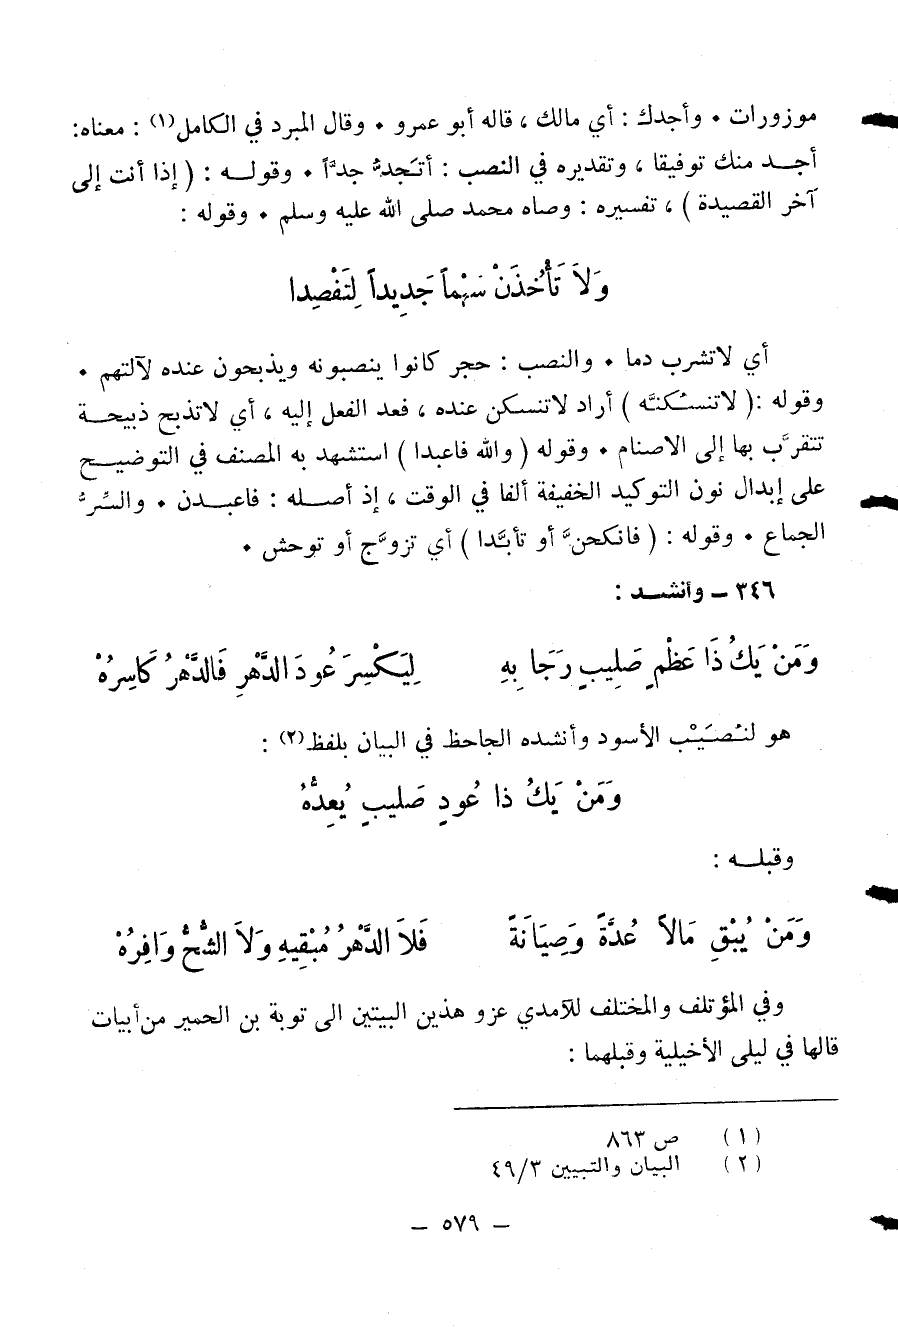 موزورات • وأجدك : أي مالك ، قاله أبو عمرو • وقال المبرد في الكامل(١) : معناه:
أجـد منك توفيقا ، وتقديره في النصب : أتَجدُّ جدَّاً • وقولـه : ( إذا أنت إلى
آخر القصيدة ) ، تفسيره : وصاه محمد صلى الله عليه وسلم • وقوله :
وَلاَ تَأْخُذَنْ سَهْماً جَدِيداً لِتَفْصِدا
أي لاتشرب دما • والنصب : حجر كانوا ينصبونه ويذبحون عنده لآلتهم •
وقوله :( لاتنسُكنَّه ) أراد لاتنسكن عنده ، فعد الفعل إليه ، أي لاتذبح ذبيحـة
تتقرَّب بها إلى الاصنام • وقوله ( والله فاعبدا ) استشهد به المصنف في التوضيـح
على إبدال نون التوكيد الخفيفة ألفا في الوقت ، إذ أصلـه : فاعبـدن • والسِّرُّ
الجماع • وقوله : ( فانكحنَّ أو تأبَّدا ) أي تزوَّج أو توحش •
٣٤٦ – وأنشـد :
وَمَنْ يَكُ ذَا عَظْمٍ صَلِيبٍ رَجَا بِهِ لِيَكْسِرَ عُودَ الدَّهْرِ فَالدَّهْرُ كَاسِرُهْ
هو لنُصَيْب الأسود وأنشده الجاحظ في البيان بلفظ(٢) :
وَمَنْ يَكُ ذا عُودٍ صَليبٍ يُعِدُّهُ
وقبلـه :
وَمَنْ يُبْقِ مَالاً عُدَّةً وَصِيَانَةً فَلاَ الدَّهْرُ مُبْقِيهِ وَلاَ الشُّحُّ وَافِرُهْ
وفي المؤتلف والمختلف للآمدي عزو هذين البيتين الى توبة بن الحمير من أبيات
قالها في ليلى الأخيلية وقبلهما :
(١) ص ٨٦٣
(٢) البيان والتبيين ٤٩/٣
– ٥٧٩ –